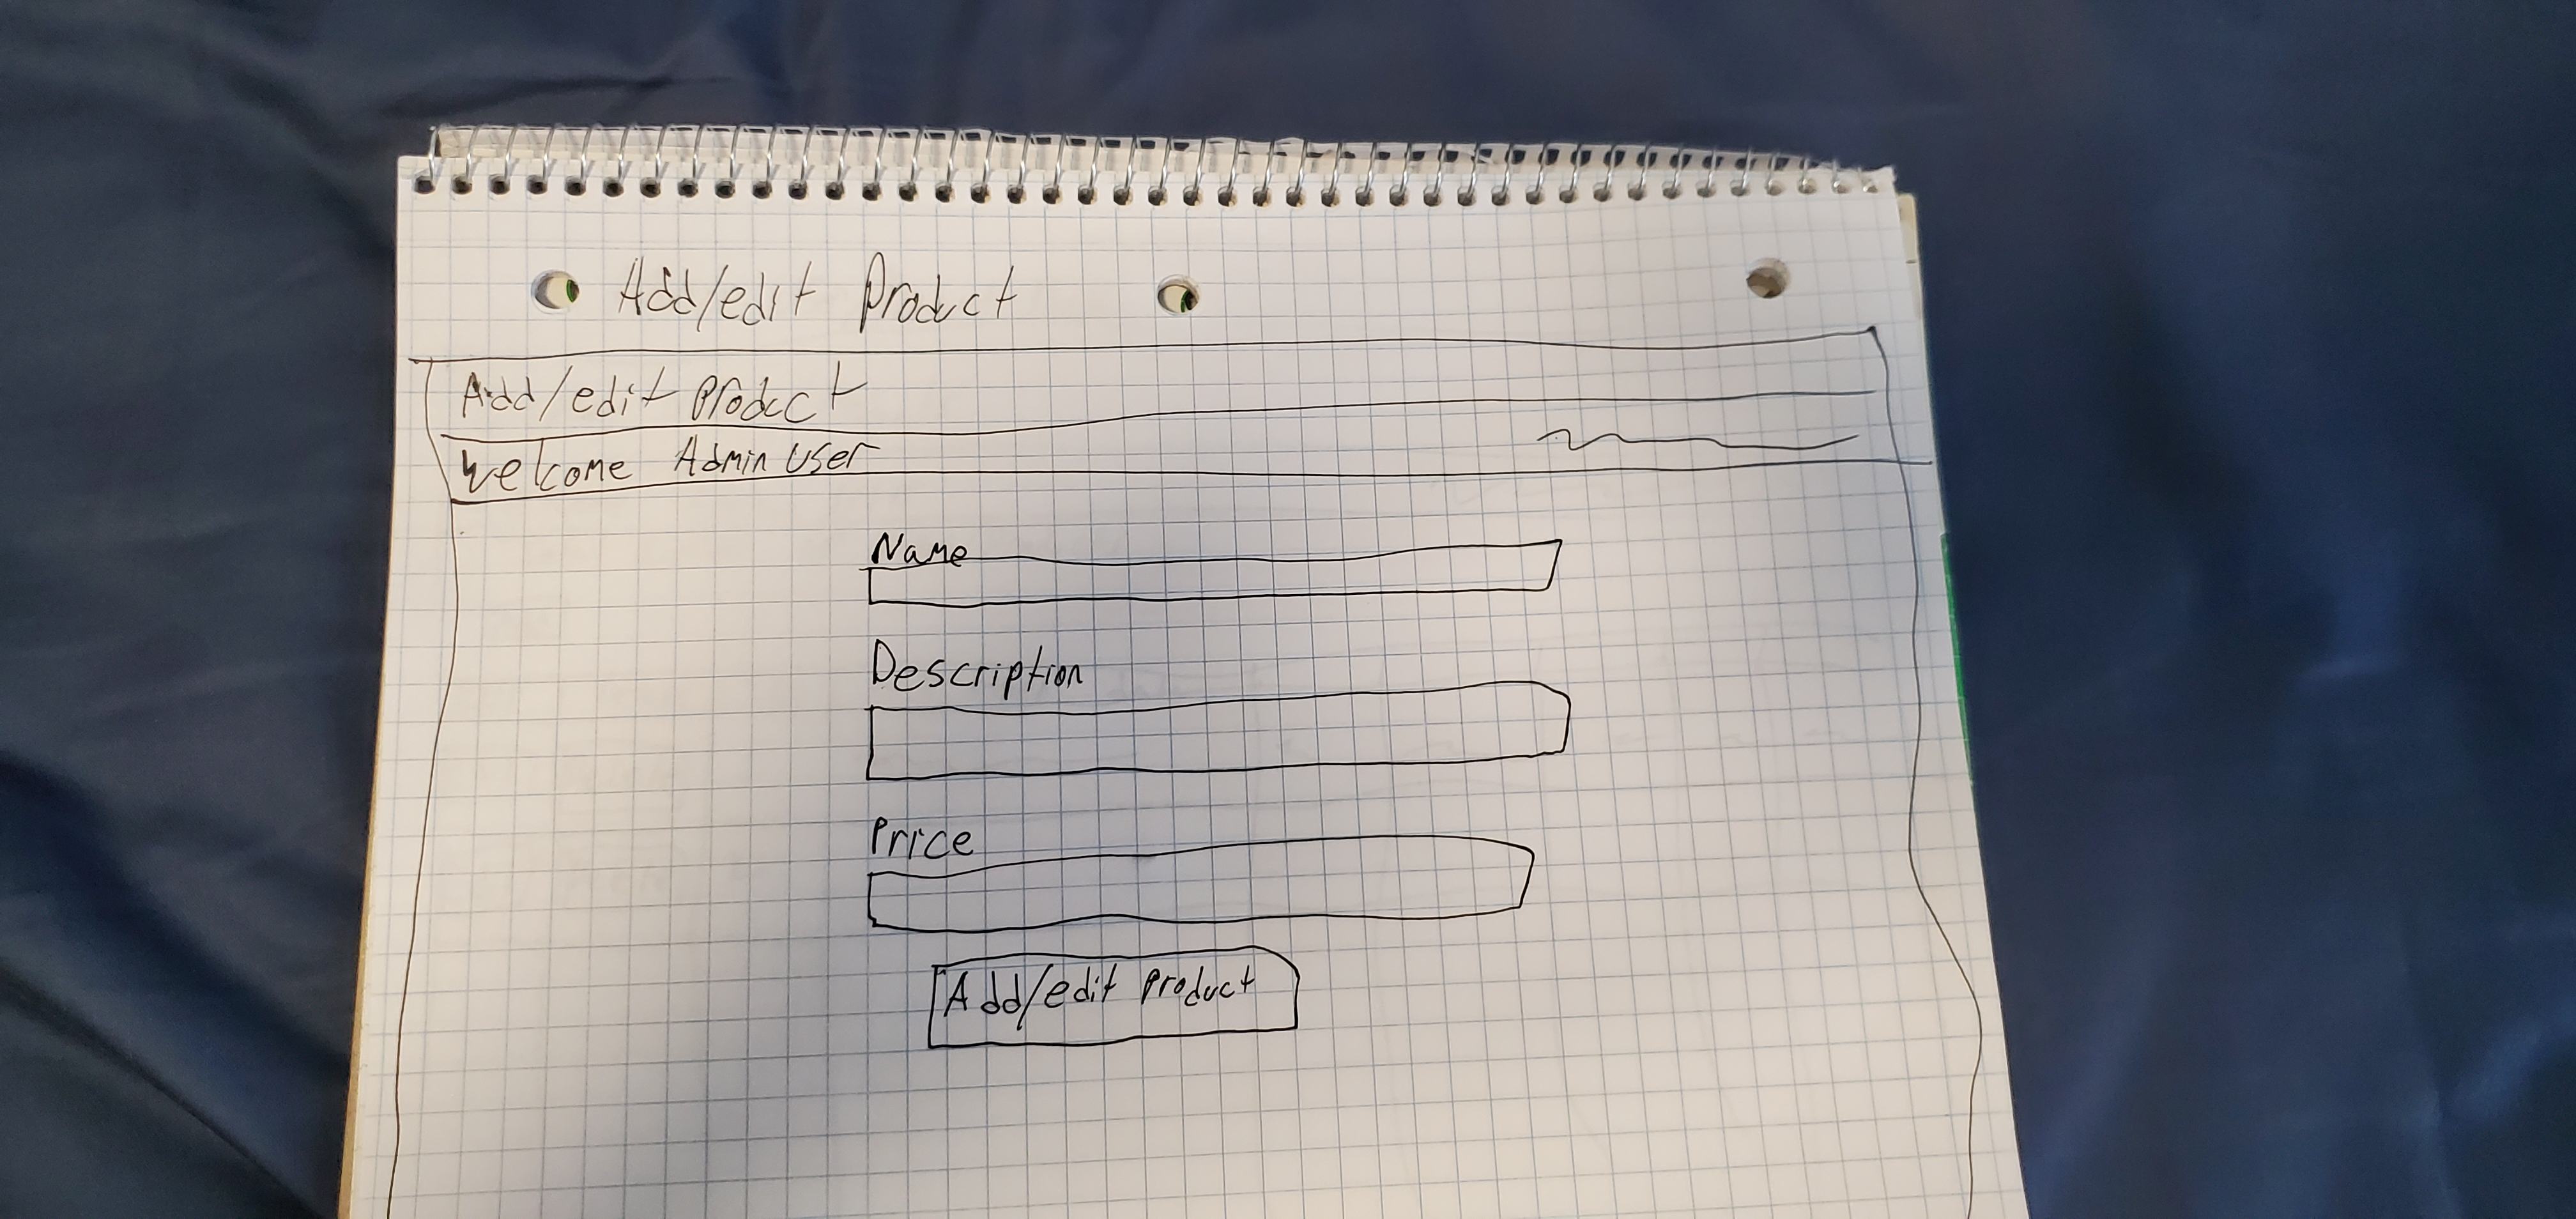 Add/edit product
Add/edit product
Welcome Admin User
Name
Description
Price
Add/edit product